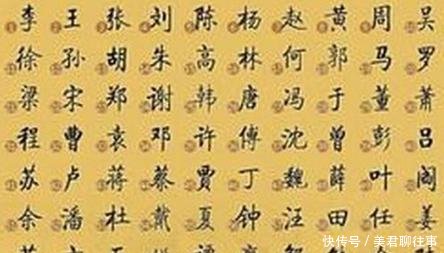 李 王 张 刘 陈 杨 赵 黄 周 吴
徐 孙 胡 朱 高 林 何 郭 马 罗
梁 宋 郑 谢 韩 唐 冯 于 董 萧
程 曹 袁 邓 许 傅 沈 曾 彭 吕
苏 卢 蒋 蔡 贾 丁 魏 薛 叶 阎
余 潘 杜 戴 夏 钟 汪 田 任 姜
快传号 / 美君聊往事